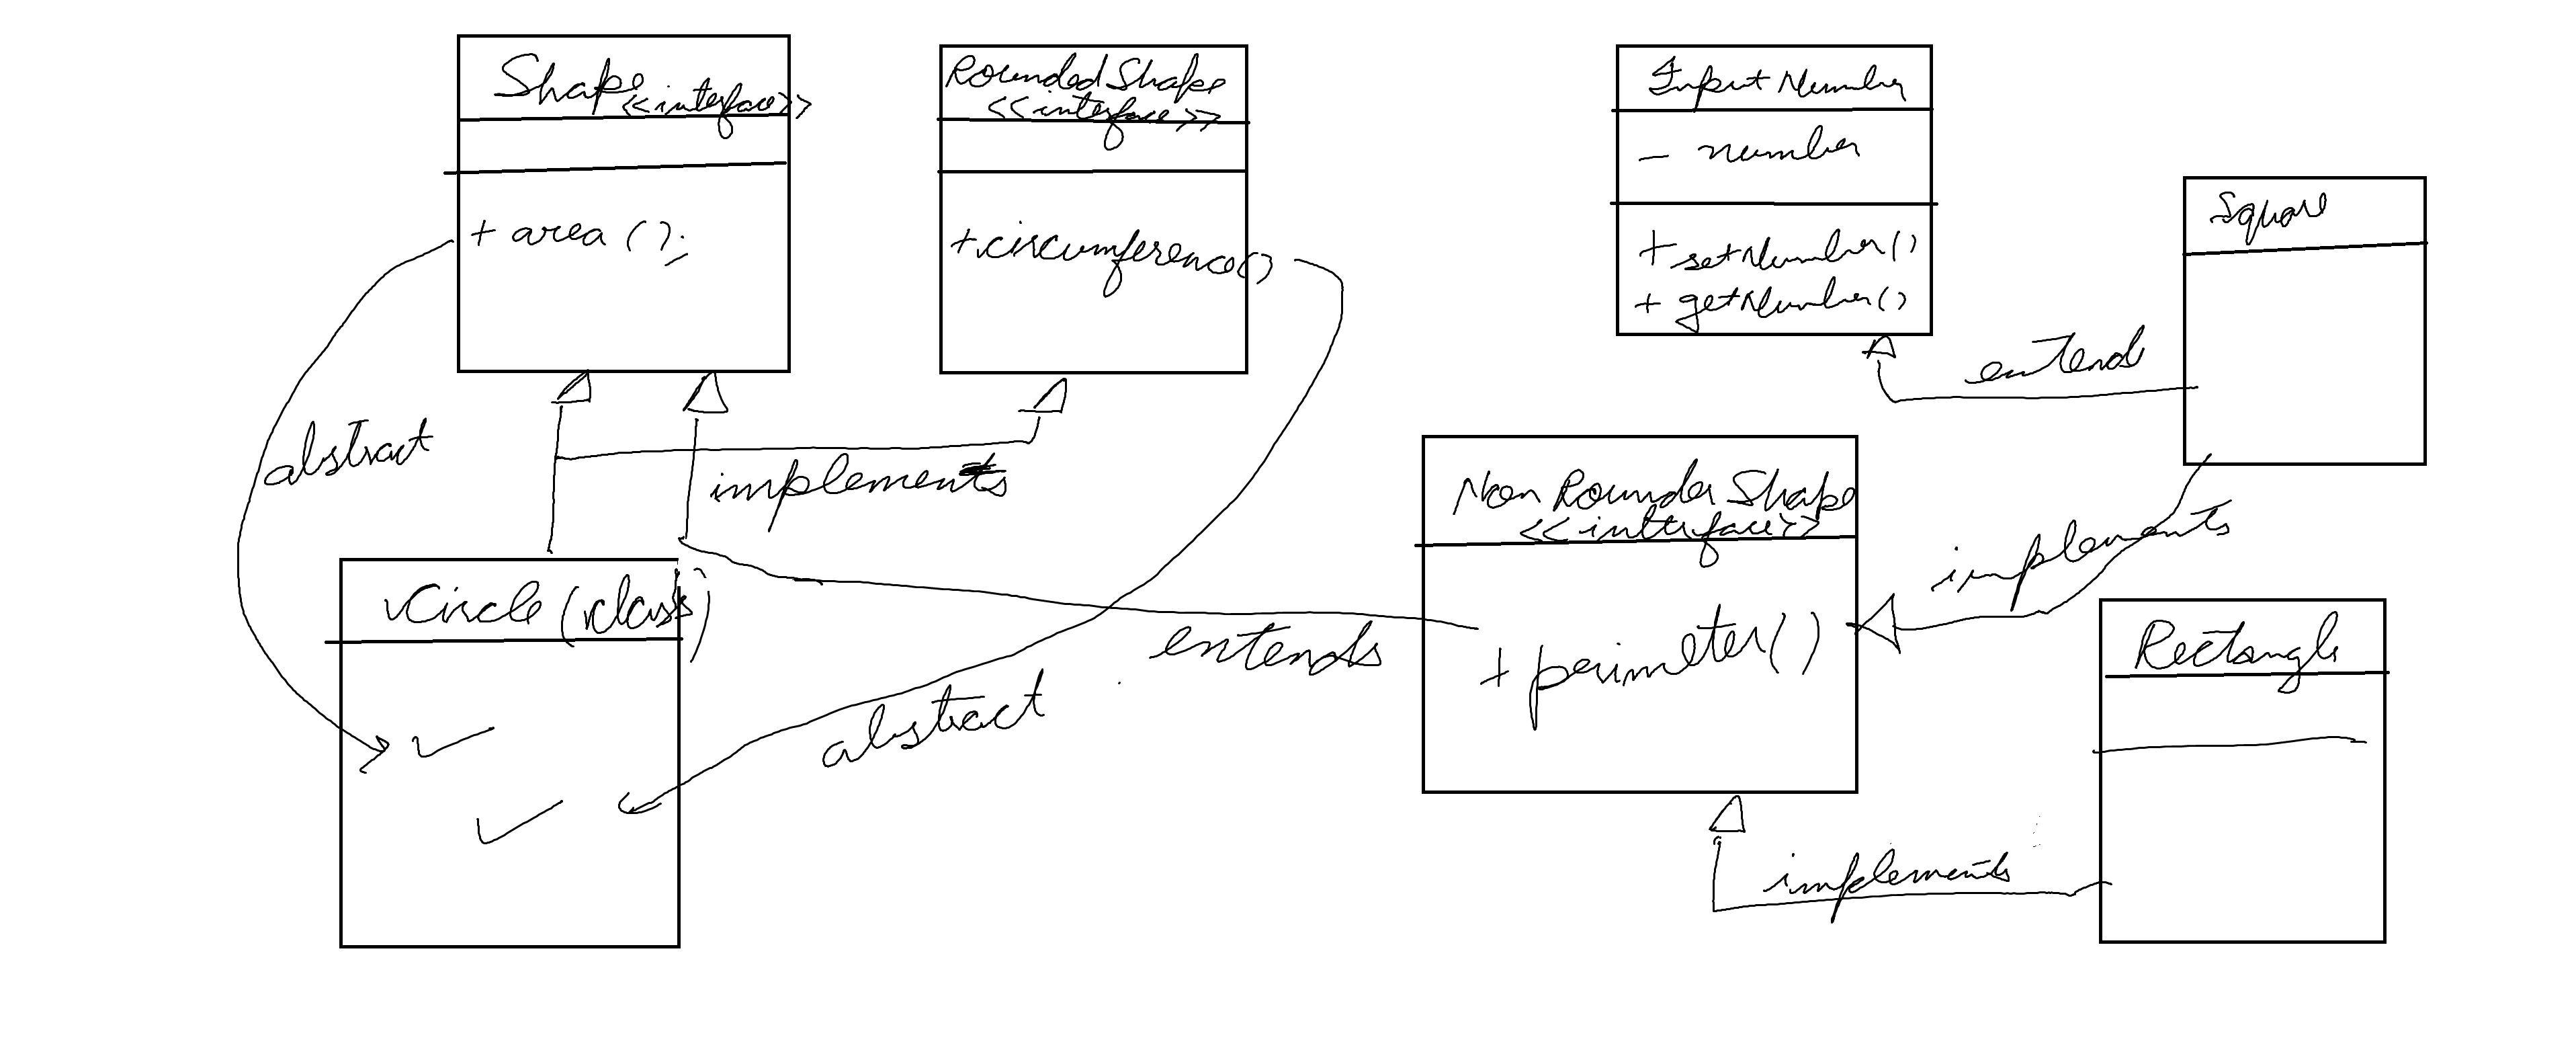 Shape
<<interface>>
+ area ();
Rounded Shape
<<interface>>
+ circumference()
Input Number
- number
+ setNumber()
+ getNumber()
Square
extends
abstract
implements
Non Rounder Shape
<<interface>>
+ perimeter()
implements
Circle (class)
extends
abstract
Rectangle
implements